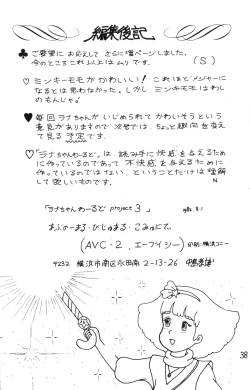 編集後記
♣ ご要望に お応えして さらに増ページしました。
今のところ これ以上は ムリです。 (S)
♡ ミンキーモモが かわいい! これほどメジャーに
なるとは思わなかった。しかし ミンキーモモはわし
のもんじゃ!
♥ 毎回ラナちゃんが いじめられて かわいそうという
意見がありますので 次号では、ちょっと趣向を変え
て見る予定です。
♡「ラナちゃんわーるど」は、読み手に快感を与えるため
に作っているのであって 不快感を与えるために
作っているのではない、ということだけは理解
して欲しいものです。 N
「ラナちゃんわーるど project 3」
(AVC-2, エーブイシー)
〒232 横浜市南区永田南 2-13-26
38